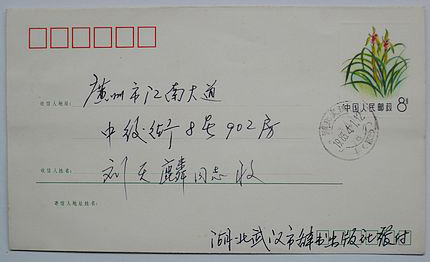 中国人民邮政 8分
广州市江南大道
收信人地址:
中级街8号902房
收信人姓名:
刘天麟同志收
寄信人地址姓名:
湖北武汉市辞书出版社发付